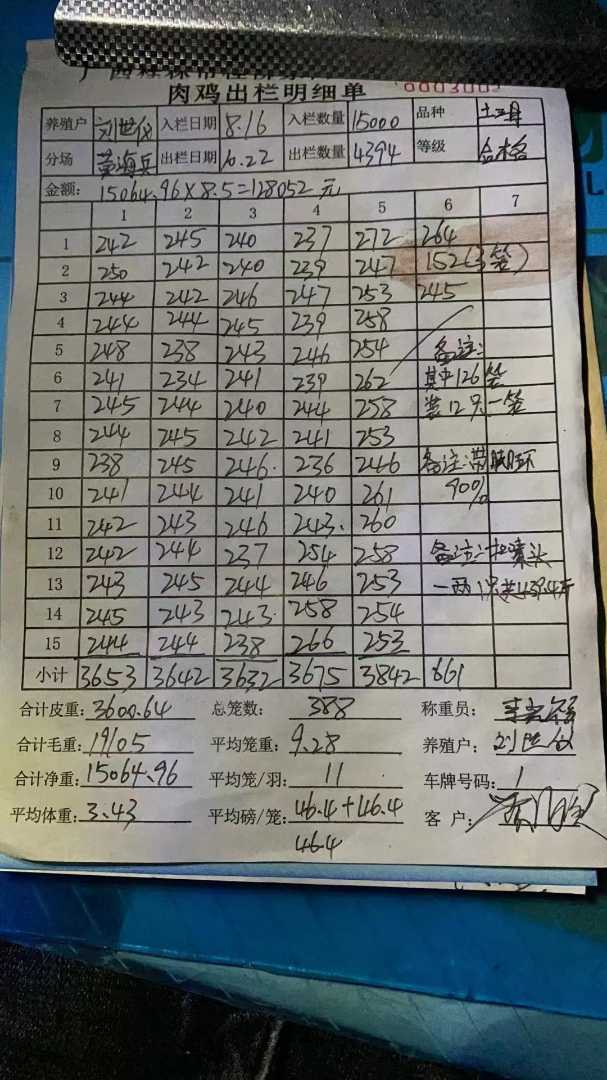 肉鸡出栏明细单
养殖户 刘世仪 入栏日期 8.16 入栏数量 15000 品种 土三月
分场 黄海兵 出栏日期 10.22 出栏数量 4394 等级 合格
金额: 15064.96×8.5=128052元
1 2 3 4 5 6 7
1 242 245 240 237 272 264
2 250 242 240 239 247 152(3笼)
3 244 242 246 247 253 245
4 244 244 245 239 258
5 248 238 243 246 254 备注:
6 241 234 241 239 262 其中126笼
7 245 244 240 244 258 装12只一笼
8 244 245 242 241 253
9 238 245 246. 236 246 备注:带脚环
10 241 244 241 240 261 90%
11 242 243 246 243. 260
12 242 244 237 254 258 备注:扣嗉头
13 243 245 244 246 253 一两1只共439.4斤
14 245 243 243. 258 254
15 244 244 238 266 253
小计 3653 3642 3632 3675 3842 661
合计皮重: 3600.64 总笼数: 388 称重员:
合计毛重: 19105 平均笼重: 9.28 养殖户: 刘世仪
合计净重: 15064.96 平均笼/羽: 11 车牌号码: 1
平均体重: 3.43 平均磅/笼: 46.4+46.4 客户:
46.4